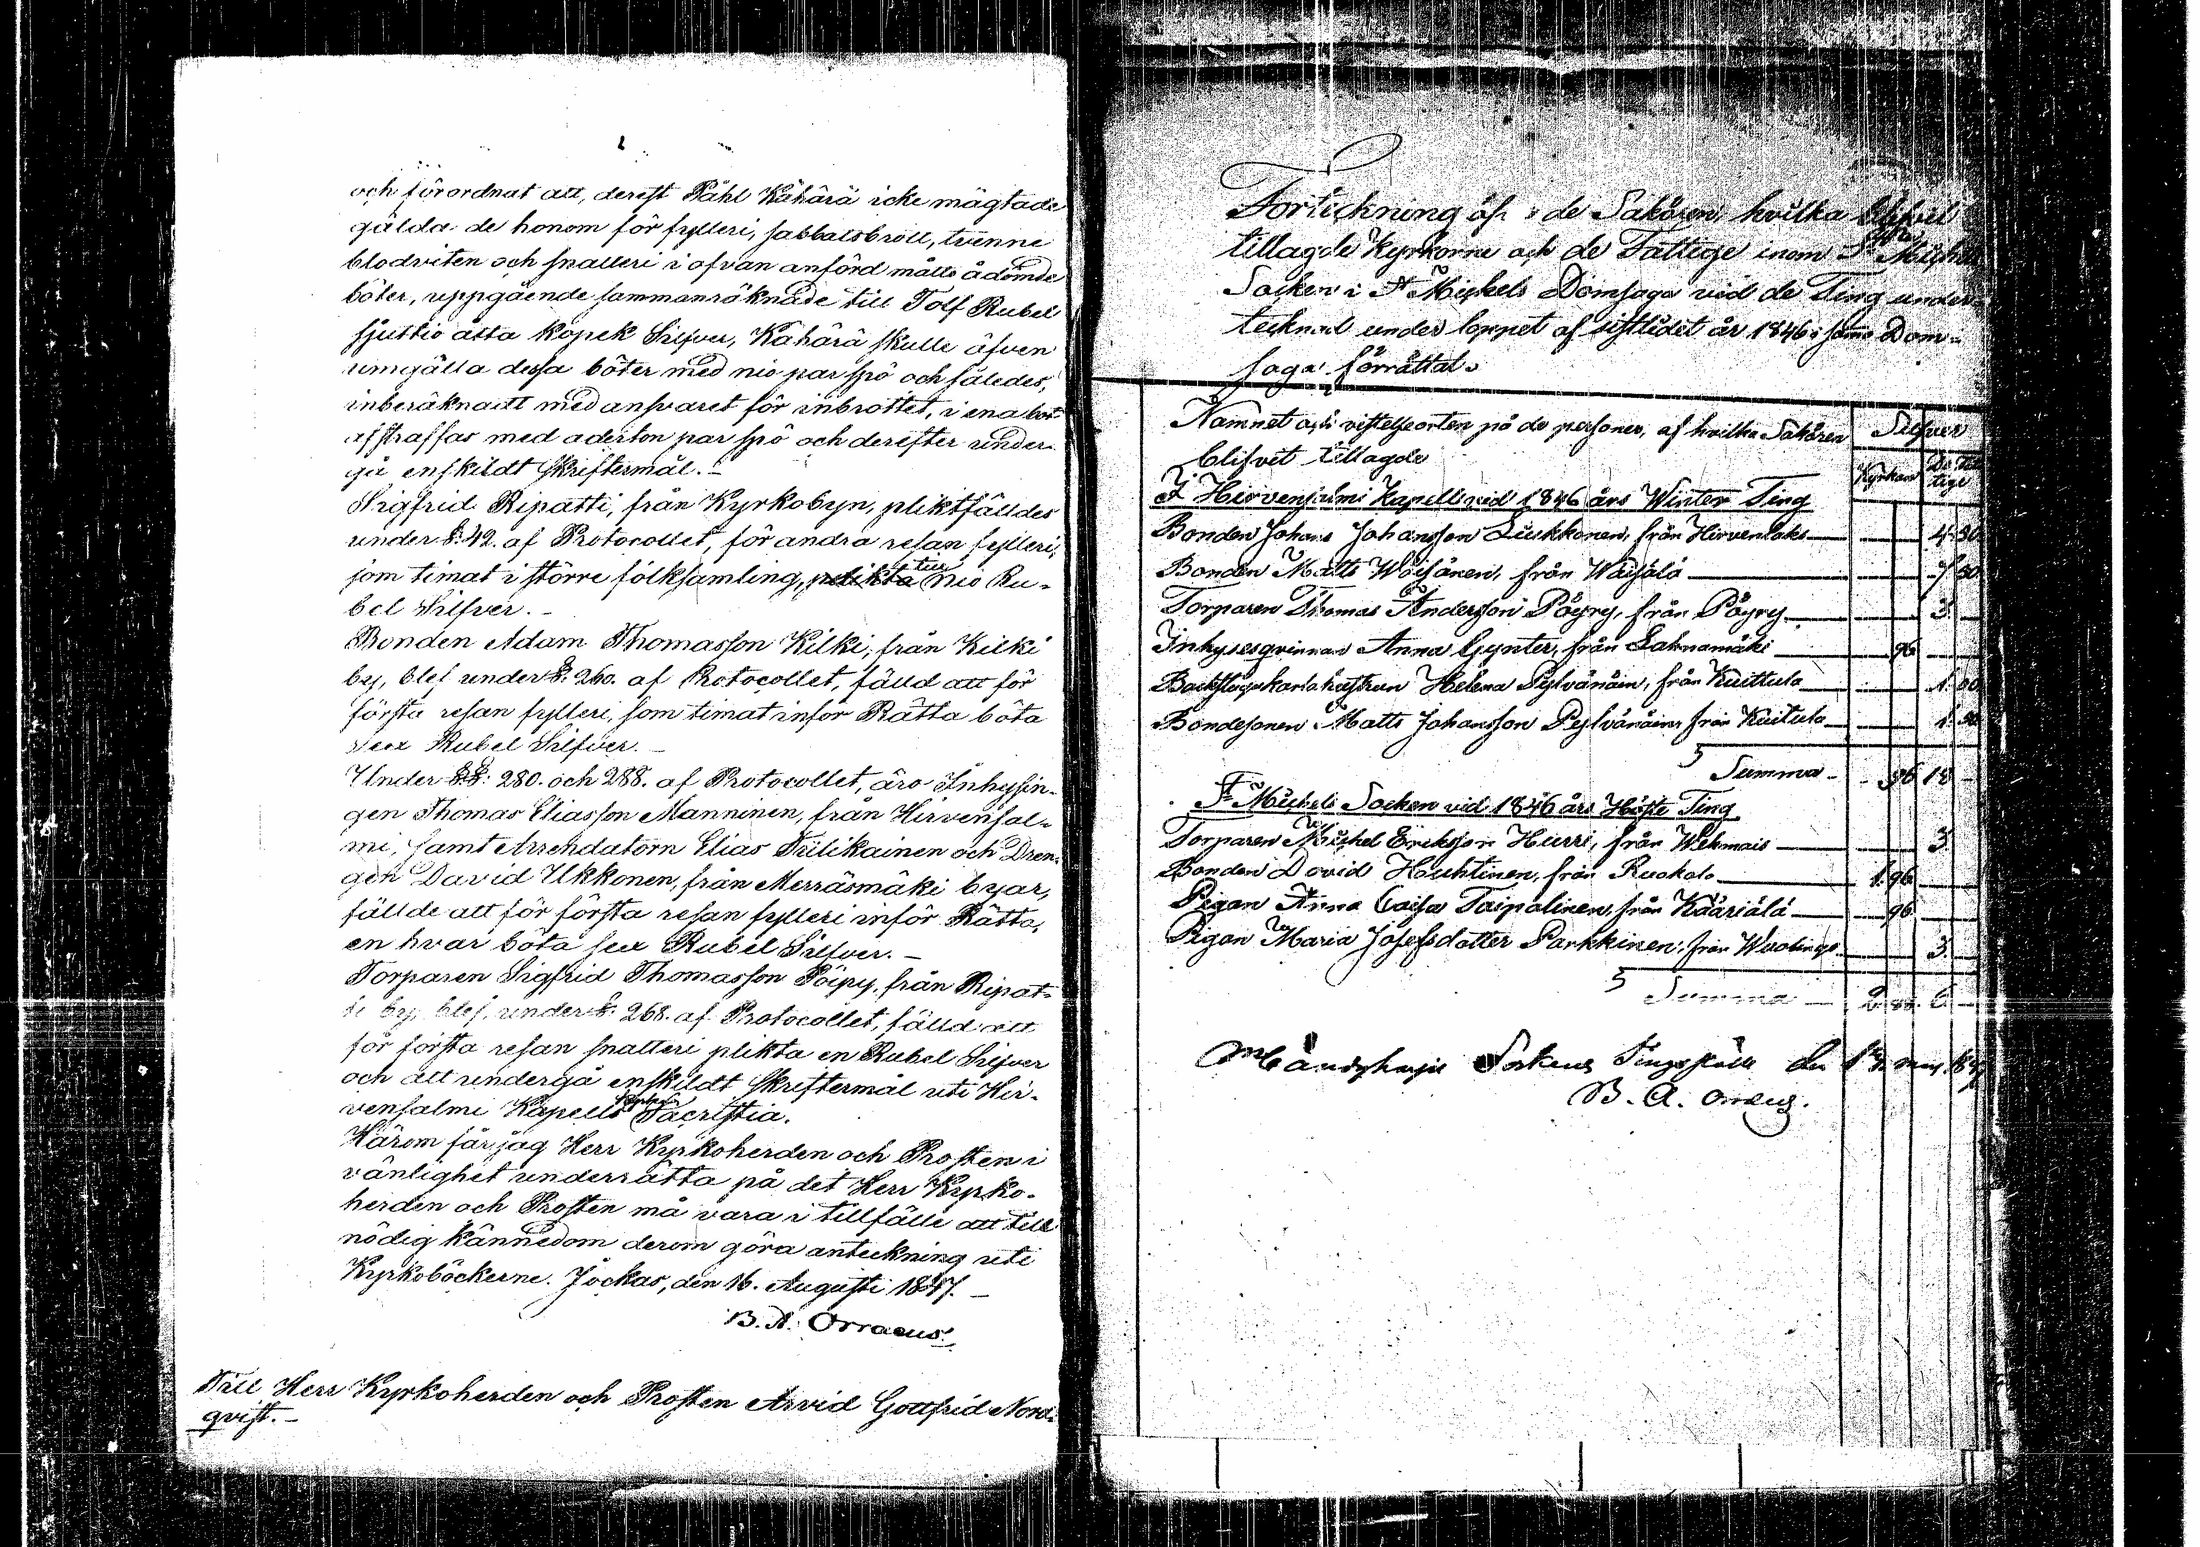 och förordnat att, derest Påhl Kähärä icke mägtade
gälda de honom för fylleri, sabbatsbrott, trenne
blodviten och snatteri i ofvan anförd måtto ådömde
böter, uppgående sammanräknade till Tolf Rubel
sjuttio åtta kopek Silfver, Kähärä skulle äfven
umgälla dessa böter med nio par spö och således,
inberäknadt med ansvaret för inbrottet, i ena bot
afstraffas med aderton par spö och derefter under-
gå enskildt Skriftermål. -
Sigfrid Ripatti, från Kyrkobyn, pliktfälldes
under §. 42. af Protocollet, för andra resan fylleri,
som timat i större folksamling, till nio Ru-
bel Silfver. -
Bonden Adam Thomasson Kilki, från Kilki
by, blef under §. 260. af Protocollet, fälld att för
första resan fylleri, som timat inför Rätta böta
sex Rubel Silfver. -
Under §§: 280. och 288. af Protocollet, äro Inhysin-
gen Thomas Eliasson Manninen, från Hirvensal-
mi, samt Arrendatorn Elias Tilikainen och Dren-
gen David Ukkonen, från Merräsmäki byar,
fällde att för första resan fylleri inför Rätta,
en hvar böta sex Rubel Silfver. -
Torparen Sigfrid Thomasson Pöipy, från Ripat-
ti by, blef, under §. 268. af Protocollet, fälld att
för första resan snatteri plikta en Rubel Silfver
och att undergå enskildt Skriftermål uti Hir-
vensalmi Kapells Sacristia.
Härom får jag Herr Kyrkoherden och Prosten i
vänlighet underrätta på det Herr Kyrko-
herden och Prosten må vara i tillfälle att till
nödig kännedom derom göra anteckning uti
Kyrkoböckerne. Jockas, den 16. Augusti 1847. -
B. A. Orraeus.
Till Herr Kyrkoherden och Prosten Arvid Gottfrid Nord-
qvist. -
Förteckning öfver de Saköre, hvilka blifvit
tillagde Kyrkorne och de Fattige inom St Michels
Socken i St Michels Domsaga vid de Ting under-
tecknad under loppet af sistlidet år 1846 i samma Dom-
saga förrättat.
Namnet och vistelseorten på de personer, af hvilka Saköre
blifvit tillagde
Silfver
Kyrkan
De Fat-
tige
I Hirvensalmi Kapell vid 1846 års Winter Ting
Bonden Johan Johansson Liukkonen, från Hirvenlaks 4. 80
Bonden Matts Wäisänen, från Wäisälä 7. 80
Torparen Thomas Andersson Pöyry, från Pöyry 3.
Inhysesqvinnan Anna Gynter, från Lahnamäki 96
Backstugukarlshustrun Helena Pylvänäin, från Kuittula
Bondesonen Matts Johansson Pylvänäinen från Kuitula
Summa - 96 18 -
St Michels Socken vid 1846 års Höste Ting
Torparen Michel Eriksson Hurri, från Wehmais 3.
Bonden David Hauhtinen, från Ruokola 1. 96
Pigan Anna Caisa Taipalinen, från Kääriälä 96
Pigan Maria Josefsdotter Parkkinen, från 3.
Summa
Mäntyharju Sockens Tingsställe den
B. A. Orraeus.